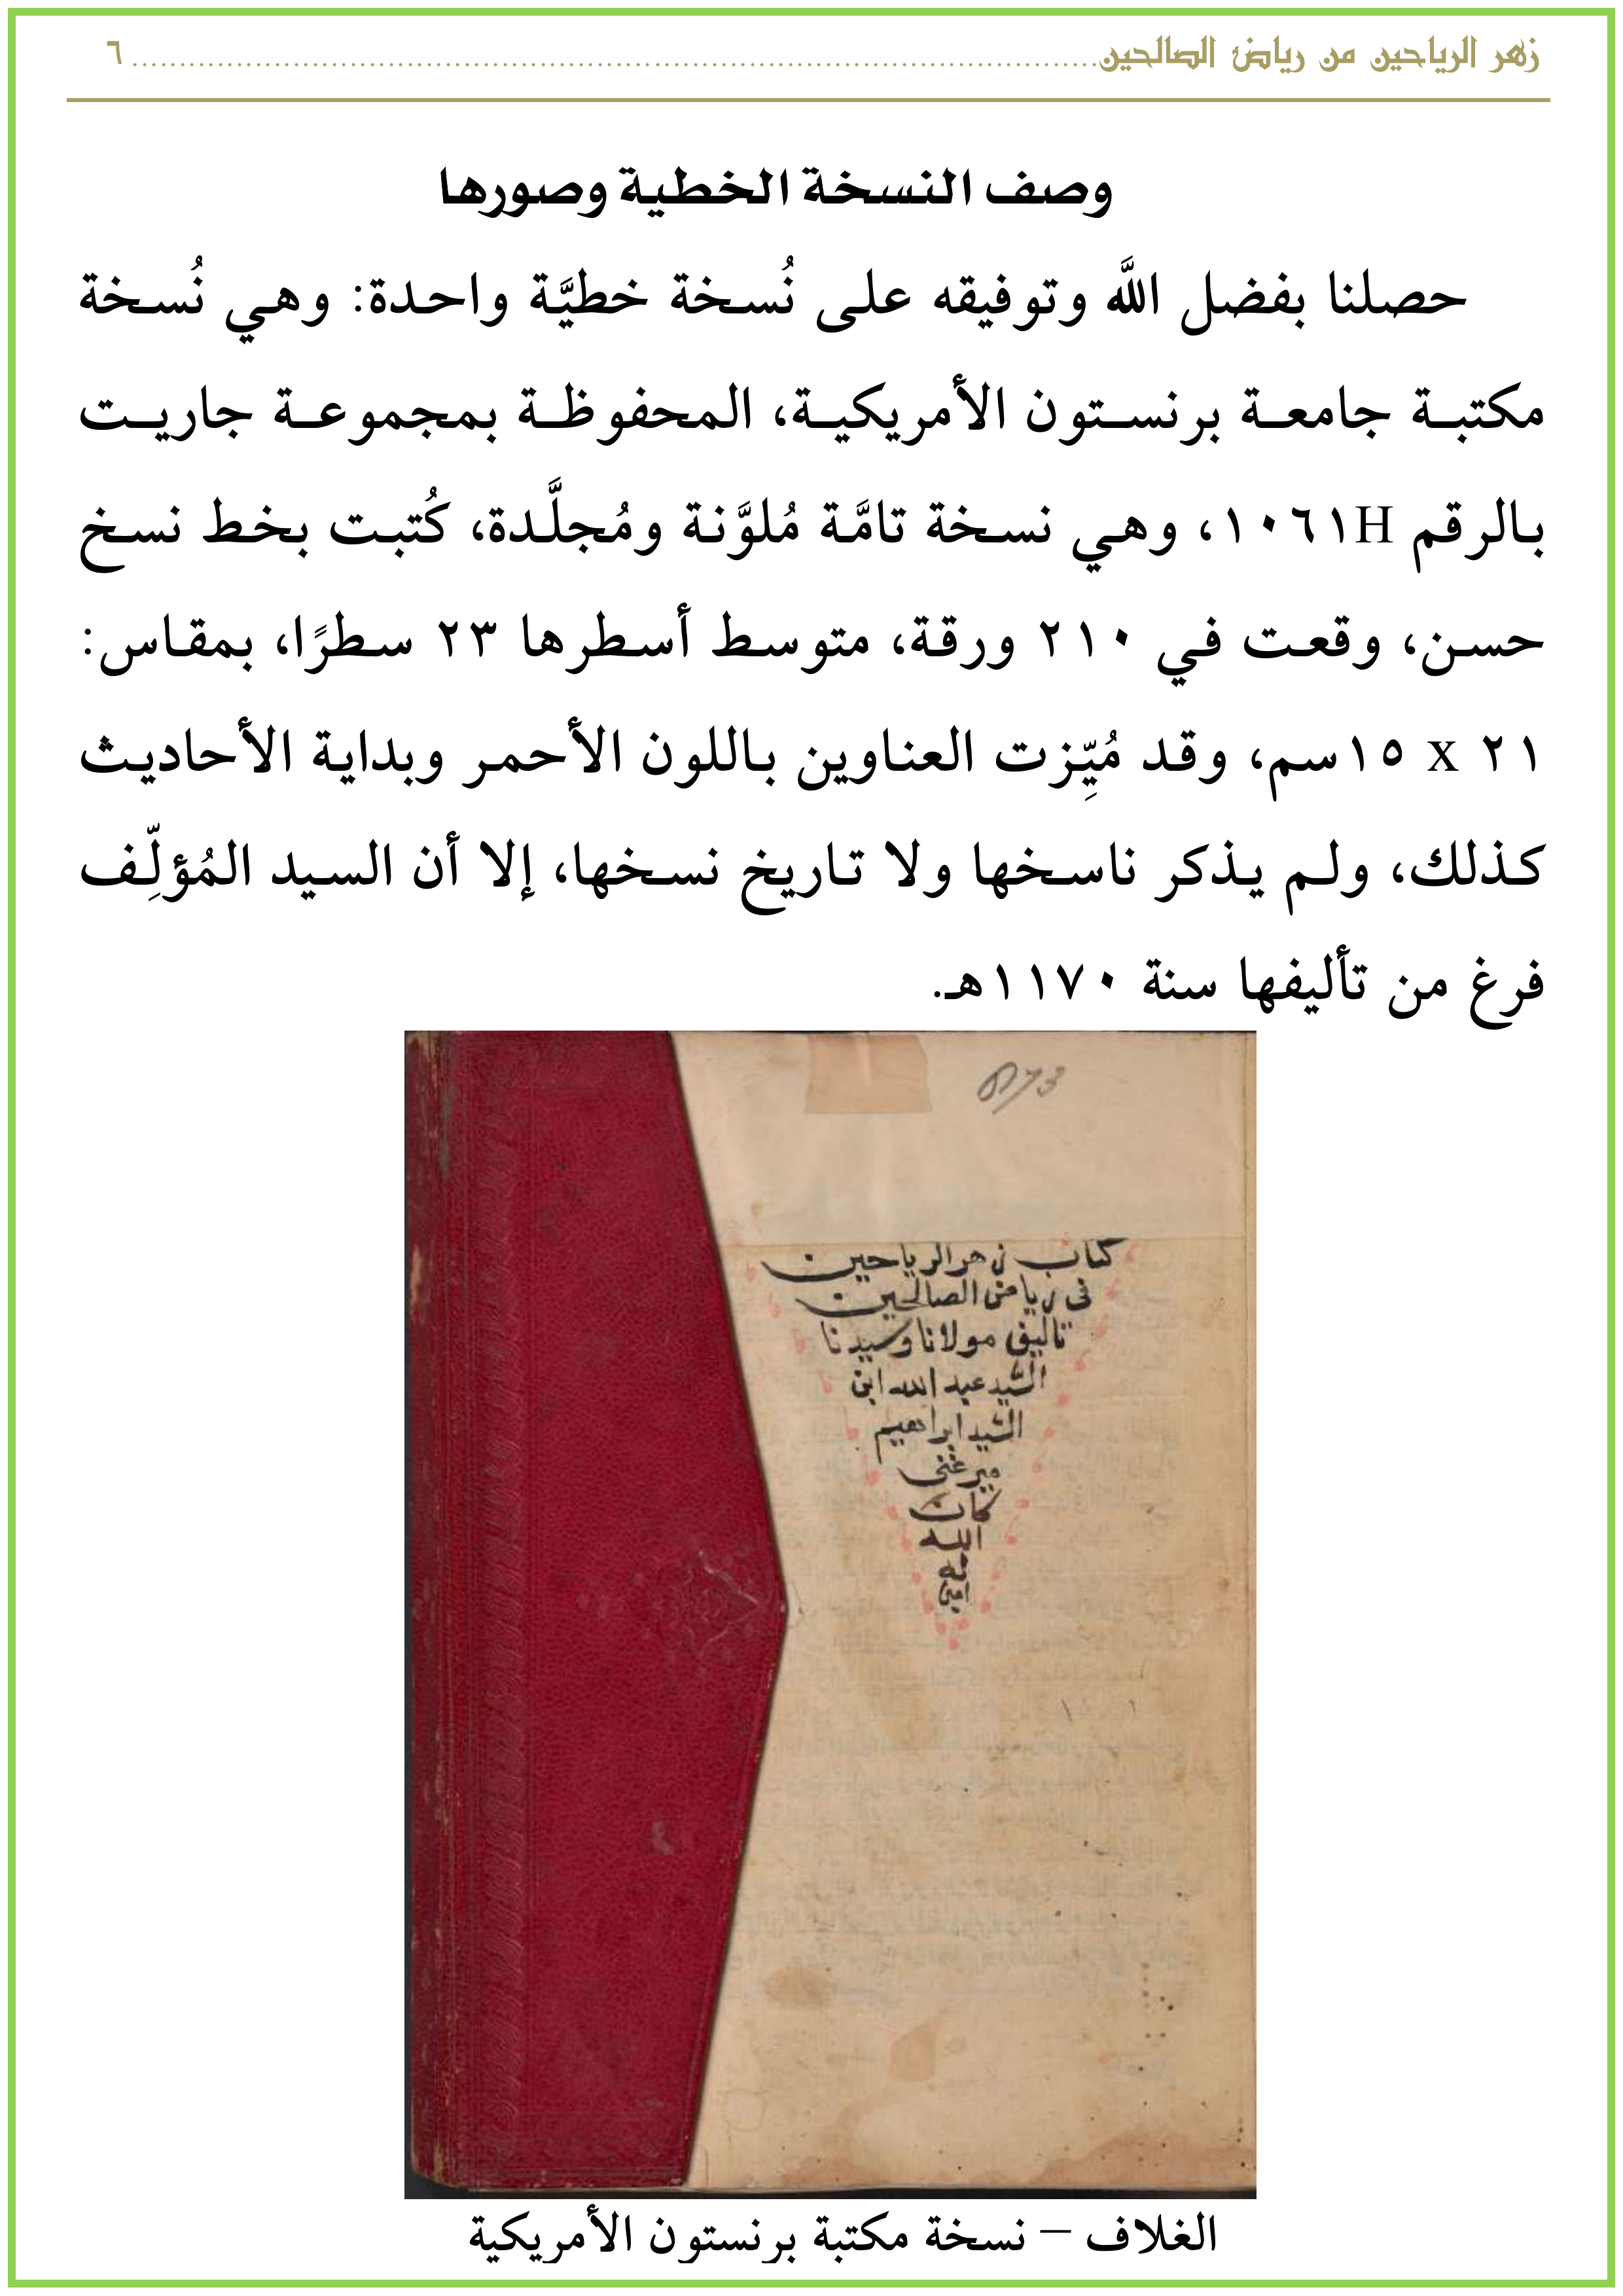 زهر الرياحين من رياض الصالحين ........................................................................................................ ٦
وصف النسخة الخطية وصورها
حصلنا بفضل الله وتوفيقه على نُسخة خطيَّة واحدة: وهي نُسخة
مكتبة جامعة برنستون الأمريكية، المحفوظة بمجموعة جاريت
بالرقم ١٠٦١H، وهي نسخة تامَّة مُلوَّنة ومُجلَّدة، كُتبت بخط نسخ
حسن، وقعت في ٢١٠ ورقة، متوسط أسطرها ٢٣ سطرًا، بمقاس:
٢١ x ١٥سم، وقد مُيِّزت العناوين باللون الأحمر وبداية الأحاديث
كذلك، ولم يذكر ناسخها ولا تاريخ نسخها، إلا أن السيد المُؤلِّف
فرغ من تأليفها سنة ١١٧٠هـ.
كتاب زهر الرياحين
في رياض الصالحين
تاليف مولانا وسيدنا
السيد عبد الله ابن
السيد ابراهيم
ميرغني
كان
الله
له
امين
الغلاف – نسخة مكتبة برنستون الأمريكية